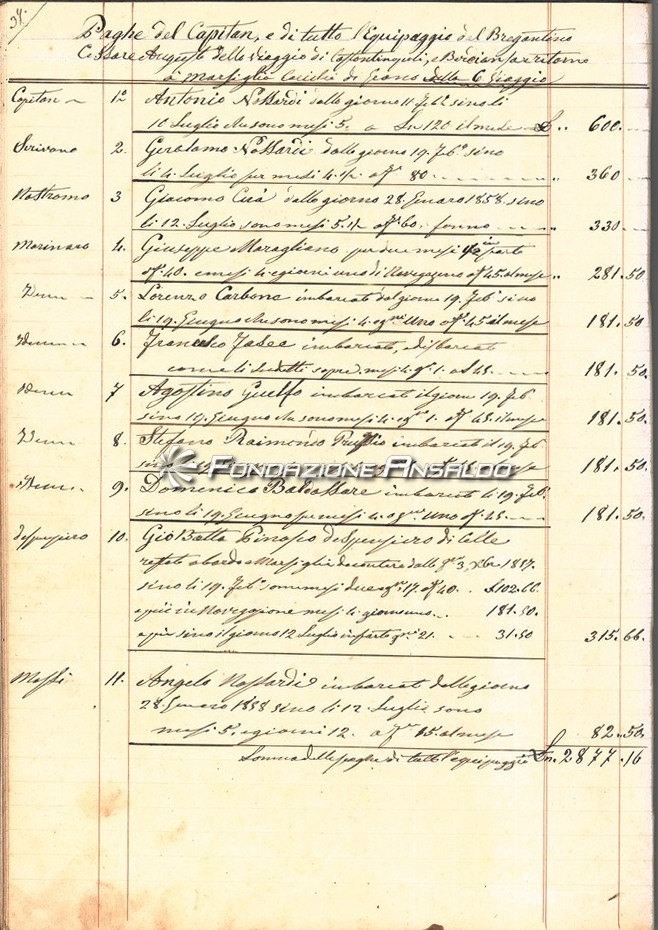 34.
Paghe del Capitan, e di tutto l'equipaggio del Bregantino
Cesare Augusto dello viaggio di Costantinopoli, e ritorno
a Marsiglia 6 Viaggio
Capitan 1º Antonio Nattardi dalle giorno 11 Febº sino li
10 Luglio che sono mesi 5. a Ln 120 il mese £ 600.
Scrivano 2. Gerolamo Nattardi dalle giorno 19. Febº sino
li 4. Luglio per mesi 4. ½ a 80. 360
Nostromo 3 Giacomo dalle giorno 28. Genaro 1858. sino
li 12. Luglio sono mesi 5. ½ a 60. fanno 330
Marinaro 4. Giuseppe Maragliano per due mesi in parto
a 40. e mesi 4. e giorni uno di Navigazione a 45. al mese 281.50
Idem 5. Lorenzo Carbone imbarcato dal giorno 19. Febº sino
li 19. Giugno che sono mesi 4. e Uno a 45 al mese 181.50
Idem 6. Francesco imbarcato, e disbarcato
come li sudetti sopra. mesi 4. 1. a 45. 181.50.
Idem 7 Agostino Guelfo imbarcato il giorno 19. Feb
sino 19. Giugno che sono mesi 4. e 1. a 45. il mese 181.50
Idem 8. Stefano Raimondo imbarcato il 19. Feb
FONDAZIONE ANSALDO
181.50
Idem 9. Domenico Baldassare imbarcato li 19. Feb.
sino li 19. Giugno per mesi 4. e Uno a 45. 181.50.
Despensiero 10. Gio Batta Despensiero di Celle
restato a bordo a Marsiglia da contare dalle 3, Xbre 1857.
sino li 19. Feb. sono mesi due e 17. a 40. £102.66.
e più in Navigazione mesi 4. giorni uno 181.50.
e più sino il giorno 12 Luglio in parto 21. 31.50 315.66.
11. Angelo Nattardi imbarcato dalle giorno
28. Genaro 1858 sino li 12. Luglio sono
mesi 5. e giorni 12. a 15. al mese 82.50.
Somma delle paghe di tutto l'equipaggio Ln. 2877.16